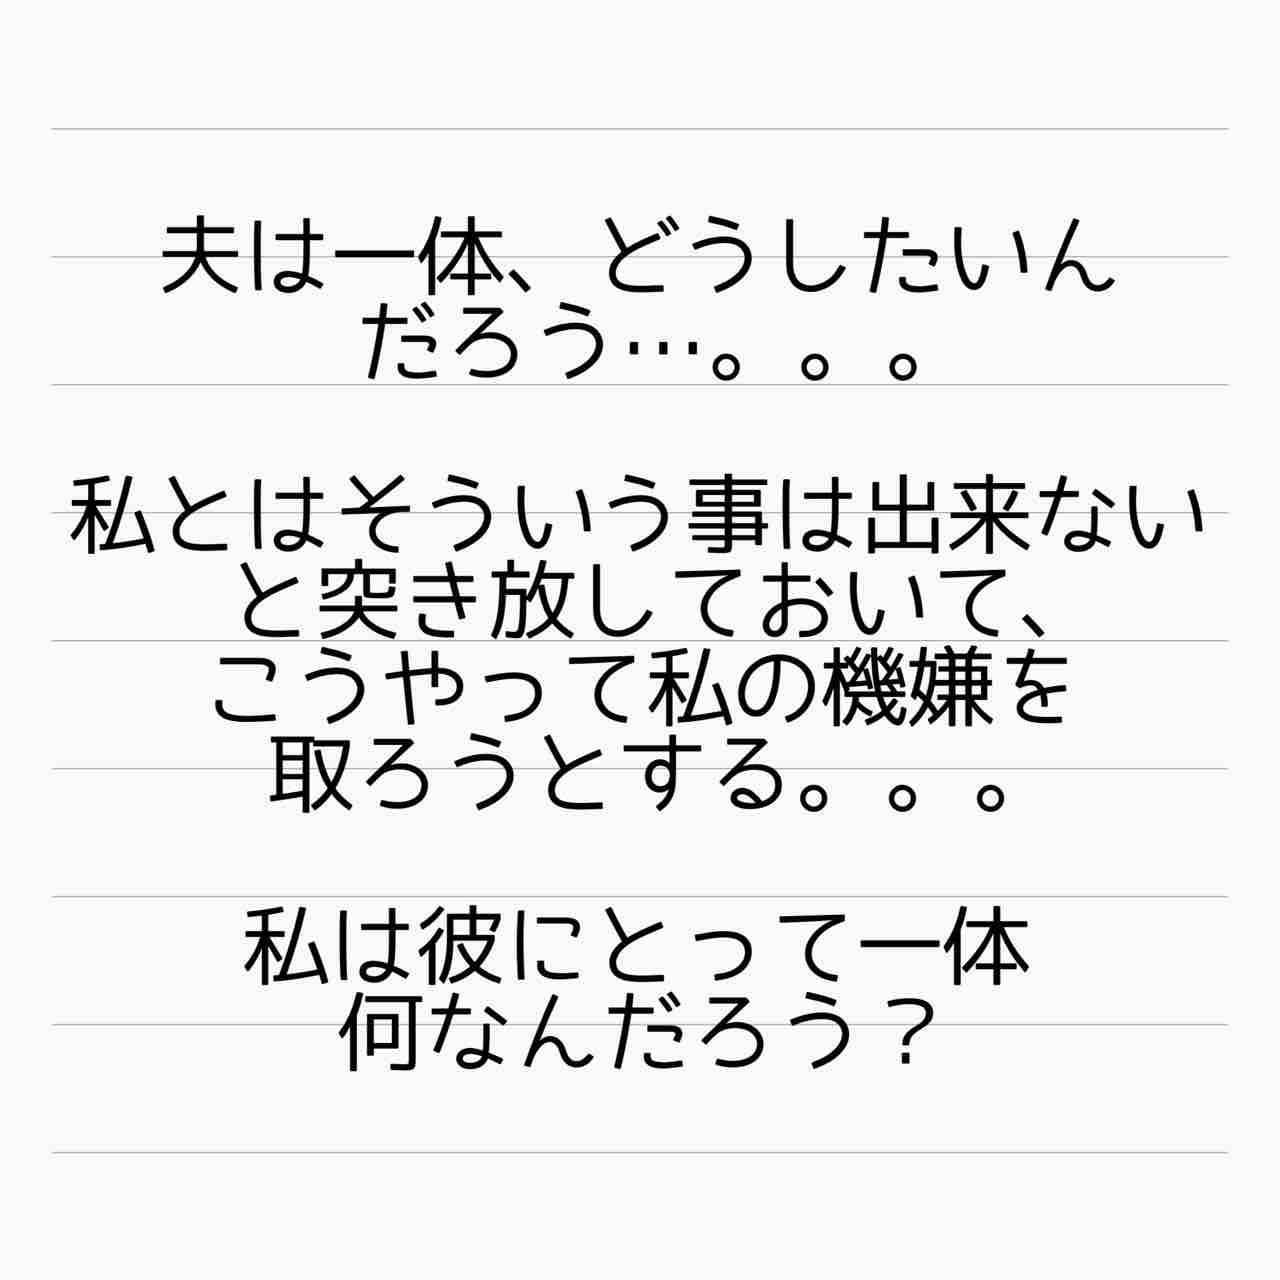 夫は一体、どうしたいん
だろう…。。。
私とはそういう事は出来ない
と突き放しておいて、
こうやって私の機嫌を
取ろうとする。。。
私は彼にとって一体
何なんだろう？